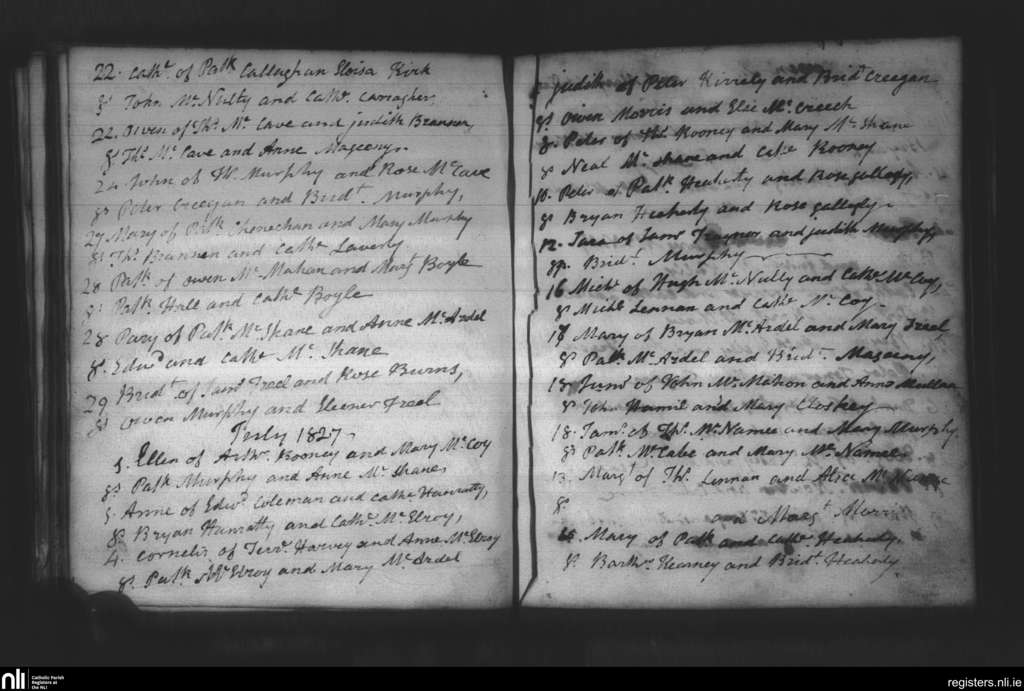 22. Cathe. of Patk Callaghan Eloisa Kirk
gs John Mc Nulty and Cathe. Carragher,
22. Owen of Ths. Mc Cave and judith Brannen,
gs Ths. Mc Cave and Anne Mageeny.
24 John of Ths. Murphy and Rose Mc Cave
gs Peter Creegan and Bridt. Murphy,
27 Mary of Patk Shonechan and Mary Murphy
gs Ths. Brannen and Cathe Laverty
28 Patk of Owen Mc Mahan and Margt Boyle
gs Patk Hall and Cathe Boyle
28. Patk. Mc Shane and Anne Mc Ardel
gs. Edwd and Cathe Mc Shane
29 Bridt of Jams Treel and Rose Burns,
gs Owen Murphy and Eleener Treel
July 1827
3. Ellen of Arthr. Rooney and Mary Mc Coy
gs Patk Murphy and Anne Mc Shane,
3. Anne of Edwd Coleman and Cathe Hanratty,
gs Bryan Hanratty and Cathe. Mc Elroy,
4. Cornelis of Terre. Harvey and Anne Mc Elroy
gs. Patk Mc Elroy and Mary Mc Ardel
judith of Peter and Bridt Creegan
gs Owen Morris and Mc Creech
8. Peter of Ths Rooney and Mary Mc Shane
gs Neal Mc Shane and Cathe Rooney
10. Peter of Patk. Heaherty and Rose gallogly,
gs Bryan Heaherty and Rose gallogly.
12. of Jams Traynor and judith Murphy,
gs. Bridt. Murphy
16 Michl of Hugh Mc Nully and Cathe Mc Coy,
gs Michl Lennan and Cathe Mc Coy.
17 Mary of Bryan Mc Ardel and Mary Treel
gs Patk. Mc Ardel and Bridt. Mageeny,
18 of John Mc Mahon and Anne Mullan
gs Hamil and Mary Closkey
18. Jams. of Ths. Mc Namee and Mary Murphy.
gs Patk. Mc Cabe and Mary Mc Namee.
13. Margt of Ths. Lennan and Alice Mc
gs and Margt Morris
Mary of Patk and Cathe Heaherty.
gs. Barthw. Kearney and Bridt. Heaherty
nli
Catholic Parish
Registers at
the NLI
registers.nli.ie